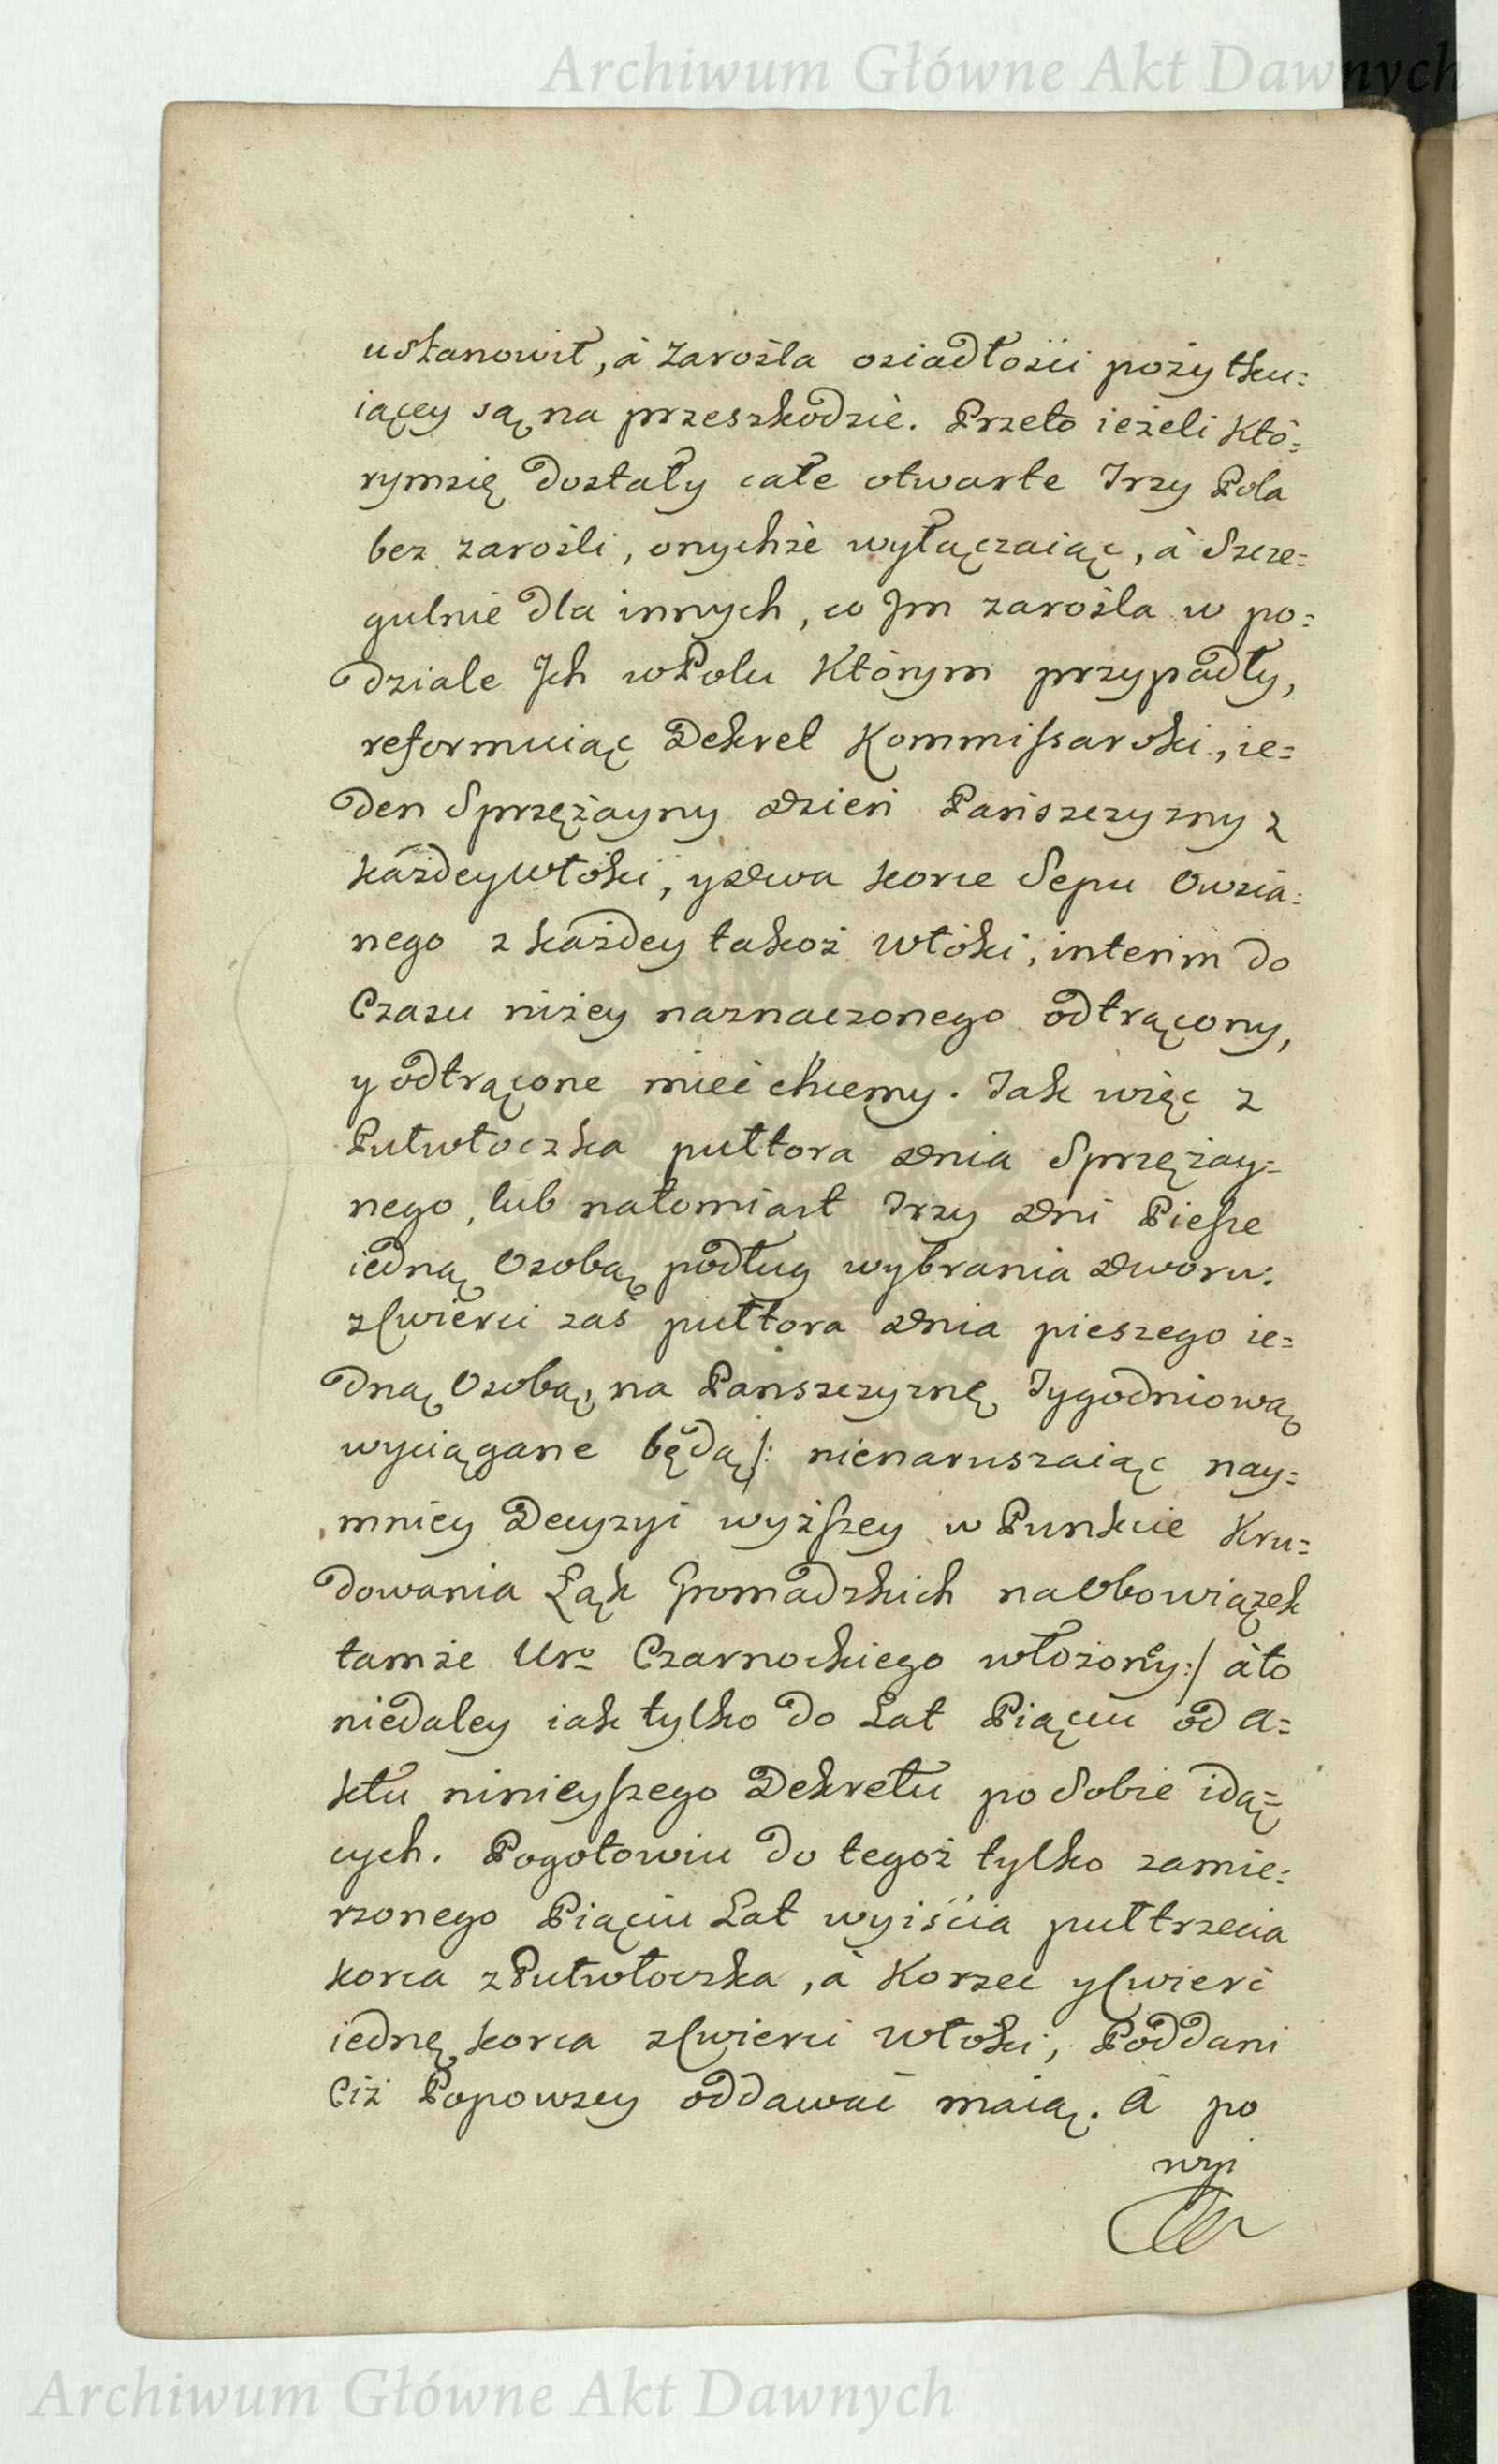 Archiwum Główne Akt Dawnych
ustanowił, á Zarośla osiadłości pożytku=
iącey są na przeszkodzie. Przeto ieżeli któ=
rymsię dostały całe otwarte Trzy Pola
bez zarośli, onychże wyłączaiąc, á Szcze=
gulnie dla innych, co Jm zarośla w po=
dziale Jch w Polu którym przypadły,
reformuiąc Dekret Kommissarski, ie=
den Sprzężayny Dzień Pańszczyzny z
każdey włóki, y Dwa korce Sepu Owsia=
nego z każdey takoż Włóki, interim do
Czasu niżey naznaczonego odtrącony,
y odtrącone mieć chcemy. Tak więc z
Pułwłoczka pułtora Dnia Sprzężay=
nego, lub natomiast Trzy Dni Piesze
iedną Osobą podług wybrania Dworu:
zCwierci zaś pułtora Dnia pieszego ie=
dną Osobą, na Pańszczyznę Tygodniową
wyciągane będą /: nienaruszaiąc nay=
mniey Decyzyi wyższey w Punkcie Kru=
dowania Łąk Gromadzkich na Obowiązek
tamże Uro Czarnockiego włożony :/ á to
niedaley iak tylko do Lat Piąciu od A=
ktu ninieyszego Dekretu po Sobie idą=
cych. Pogotowiu do tegoż tylko zamie=
rzonego Piąciu Lat wyiścia pułtrzecia
korca z Pułwłoczka, á Korzec yCwierć
iednę korca zCwierci Włóki, Poddani
Ciż Popowscy oddawać maią. A po
wyi
Archiwum Główne Akt Dawnych